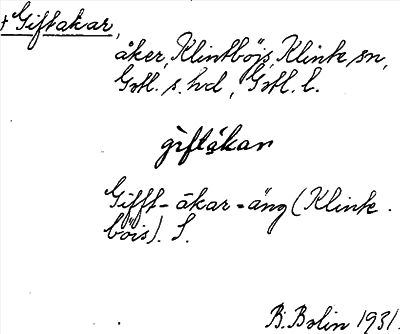 + Giftakar,
åker, Klintböis, Klinte sn,
Gotl. s. hd, Gotl. l.
giftåkan
Gifft-åkar-äng (Klinte
böis). S.
B. Bolin 1931.